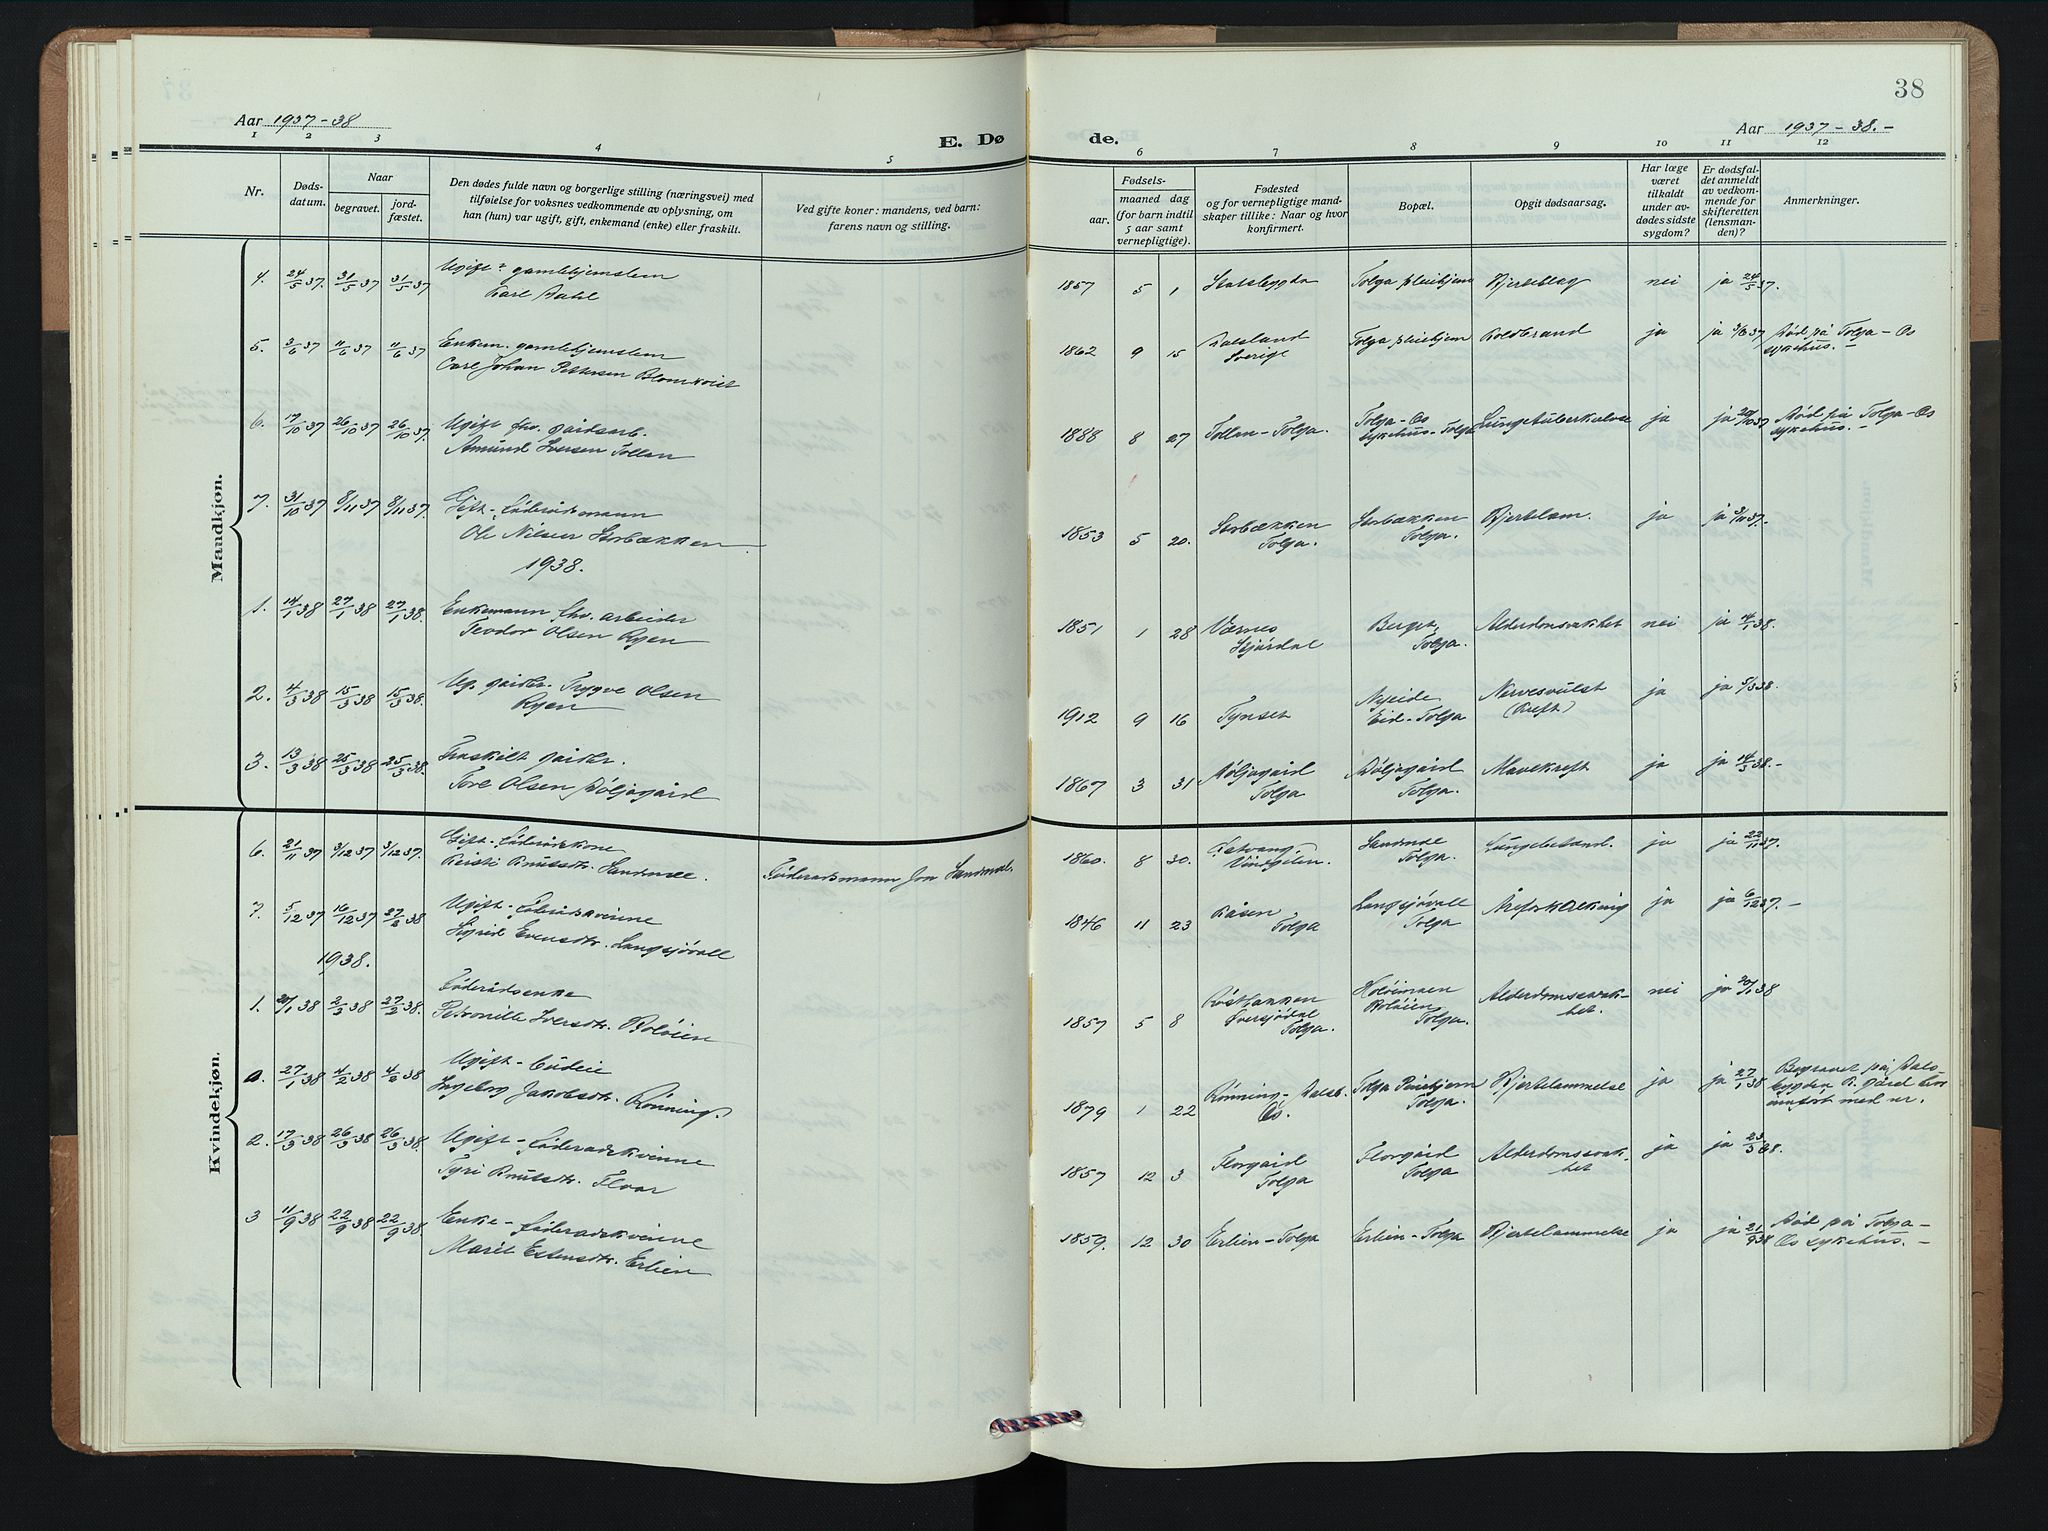 38
Aar 1937-38
Aar 1937-38.-
E. Dø
de.
1 2 3 4 5 6 7 8 9 10 11 12
Nr.
Døds-
datum.
Naar
begravet.
jord-
fæstet.
Den dødes fulde navn og borgerlige stilling (næringsvei) med
tilføielse for voksnes vedkommende av oplysning, om
han (hun) var ugift, gift, enkemand (enke) eller fraskilt.
Ved gifte koner: mandens, ved barn:
farens navn og stilling.
Fødsels-
aar.
maaned dag
(for barn indtil
5 aar samt
vernepligtige).
Fødested
og for vernepligtige mand-
skaper tillike: Naar og hvor
konfirmert.
Bopæl.
Opgit dødsaarsag.
Har læge
været
tilkaldt
under av-
dødes sidste
sygdom?
Er dødsfal-
det anmeldt
av vedkom-
mende for
skifteretten
(lensman-
den)?
Anmerkninger.
Mandkjøn.
4. 24/5 37. 31/5 37 31/5 37 Ugift gamlehjemslem
Karl Dahl
1857 5 1 Stadsbygda Tolga pleiehjem Hjerteslag nei ja 24/5 37.
5. 3/6 37 11/6 37 11/6 37 Enkem. gamlehjemslem
Carl Johan Pettersen Blomkvist
1862 9 15 Dalsland Tolga pleiehjem Koldbrand ja ja 3/6 37 Død på Tolga-Os
Sverige sykehus.-
6. 17/10 37 26/10 37 26/10 37. Ugift fhv. gårdsarb.
Amund Iversen Tollan
1888 8 27 Tollan-Tolga. Tolga-Os Lungetuberkulose ja ja 20/10 37 Død på Tolga-Os
sykehus-Tolga sykehus.-
7. 31/10 37 8/11 37 8/11 37. Gift- Føderådsmann
Ole Nilsen Storbækken
1853 5 20. Storbækken Storbækken Hjertelam. ja ja 37.
Tolga. Tolga.
1938.
1. 14/1 38 27/1 38 27/1 38. Enkemann fhv. arbeider
Teodor Olsen Ryen
1851 1 28 Værnes Berget, Alderdomssvakhet nei ja 14/1 38.
Stjørdal Tolga.
2. 4/3 38 15/3 38 15/3 38. Ug. gårdbr. Trygve Olsen
Ryen
1912 9 16 Tynset Nyeide Nervesvulst ja ja 5/3 38.
Eid-Tolga (Kreft)
3. 13/3 38 25/3 38 25/3 38. Fraskilt gårdbr.
Tore Olsen Døljagård
1867 3 31 Døljagård Døljagård Mavekreft ja ja 14/3 38.-
Tolga Tolga.
Kvindekjøn.
6. 21/11 37 3/12 37 3/12 37. Gift-Føderådskone
Kristi Knutsdtr. Sandmæl. Føderådsmann Jon Sandmæl.
1860. 8 30. Vindgelen. Tolga. Lungebetænd. ja ja 22/11 37.
7. 5/12 37 16/12 37 27/2 38 Ugift-Føderådskvinne
Sigrid Evensdtr. Langsjøvoll
1846 11 23 Kåsen Langsjøvoll Åreforkalkning ja ja 6/12 37.-
Tolga Tolga
1938.
1. 20/1 38 2/2 38 27/2 38. Føderådsenke
Petronille Iversdtr. Koløien
1857 5 8 Øversjødal Koløien Alderdomssvak- nei ja 20/1 38
Tolga. Tolga. het.
0. 27/1 38 4/2 38 4/2 38 Ugift-Budeie
Ingeborg Jakobsdtr. Rønning.
1879 1 22 Rønning-Dalsb. Tolga Pleiehjem Hjertelammelse ja ja 27/1 38 Begravet på Dals-
Os. Tolga. bygden K. gård hvor
innført med nr.
2. 17/3 38 26/3 38 26/3 38. Ugift-Føderådskvinne
Tyri Knutsdtr. Floor
1857 12 3 Florgård Florgård Alderdomssvak- ja ja 23/3 38.
Tolga Tolga het
3 11/9 38 22/9 38 22/9 38. Enke-Føderådskvinne
Marit Estensdtr. Erlien
1859. 12 30 Erlien-Tolga Erlien-Tolga Hjertelammelse ja ja 21/9 38 Død på Tolga-
Os sykehus.-